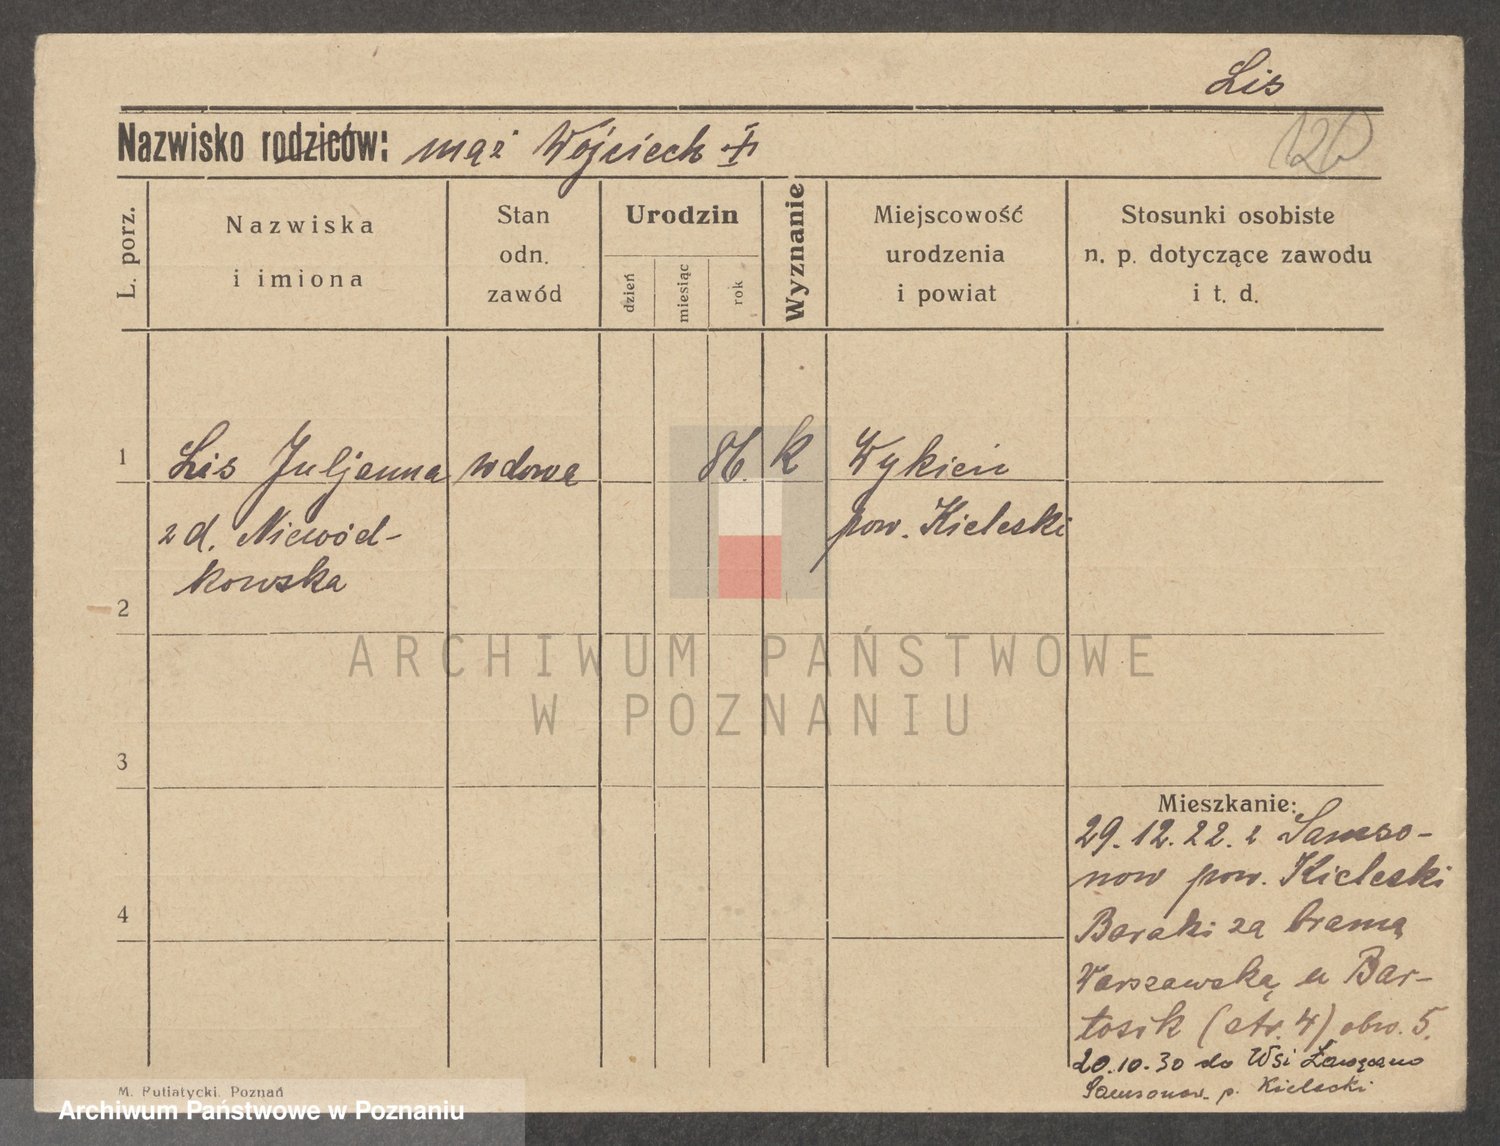 Lis
Nazwisko rodziców: mąż Wojciech
120
L. porz.
Nazwiska
i imiona
Stan
odn.
zawód
Urodzin
dzień
miesiąc
rok
Wyznanie
Miejscowość
urodzenia
i powiat
Stosunki osobiste
n. p. dotyczące zawodu
i t. d.
1 Lis Juljanna wdowa 86. k Wykień
z d. Niewód-
kowska
pow. Kieleski
2
ARCHIWUM PAŃSTWOWE
W POZNANIU
3
Mieszkanie:
29.12.22. z Samso-
now pow. Kieleski
4
Baraki za bramą
Warszawską u Bar-
tosik (str. 4) obw. 5.
20.10.30 do Wsi
Samsonow p. Kielecki
M. Putiatycki, Poznań
Archiwum Państwowe w Poznaniu